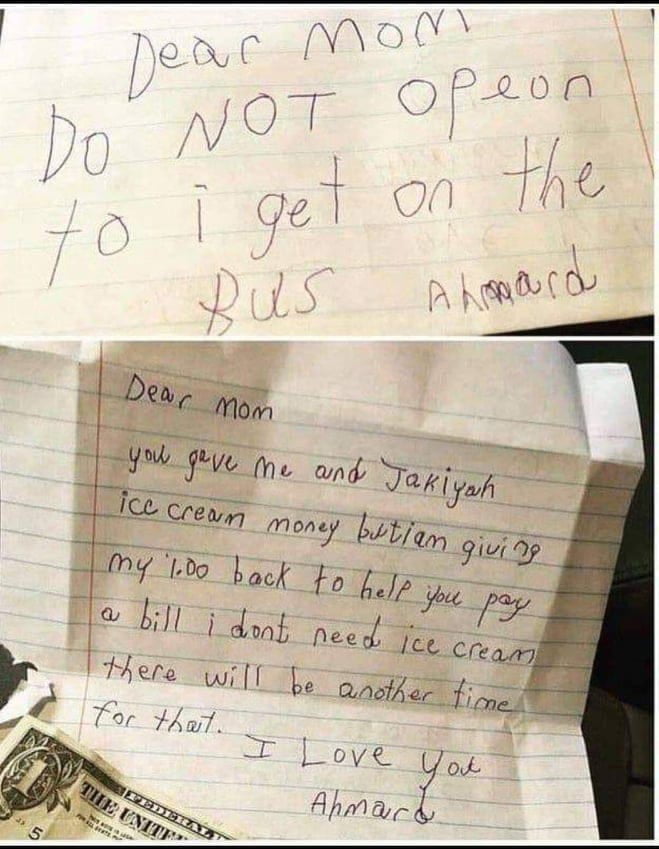 Dear Mom
Do NOT opeon
to i get on the
Bus Ahmard
Dear mom
you gave me and Jakiyah
ice cream money butiam giving
my 1.00 back to help you pay
a bill i dont need ice cream
there will be another time
for that.
I Love you
Ahmard
FEDERAL
THE UNITE
1
5